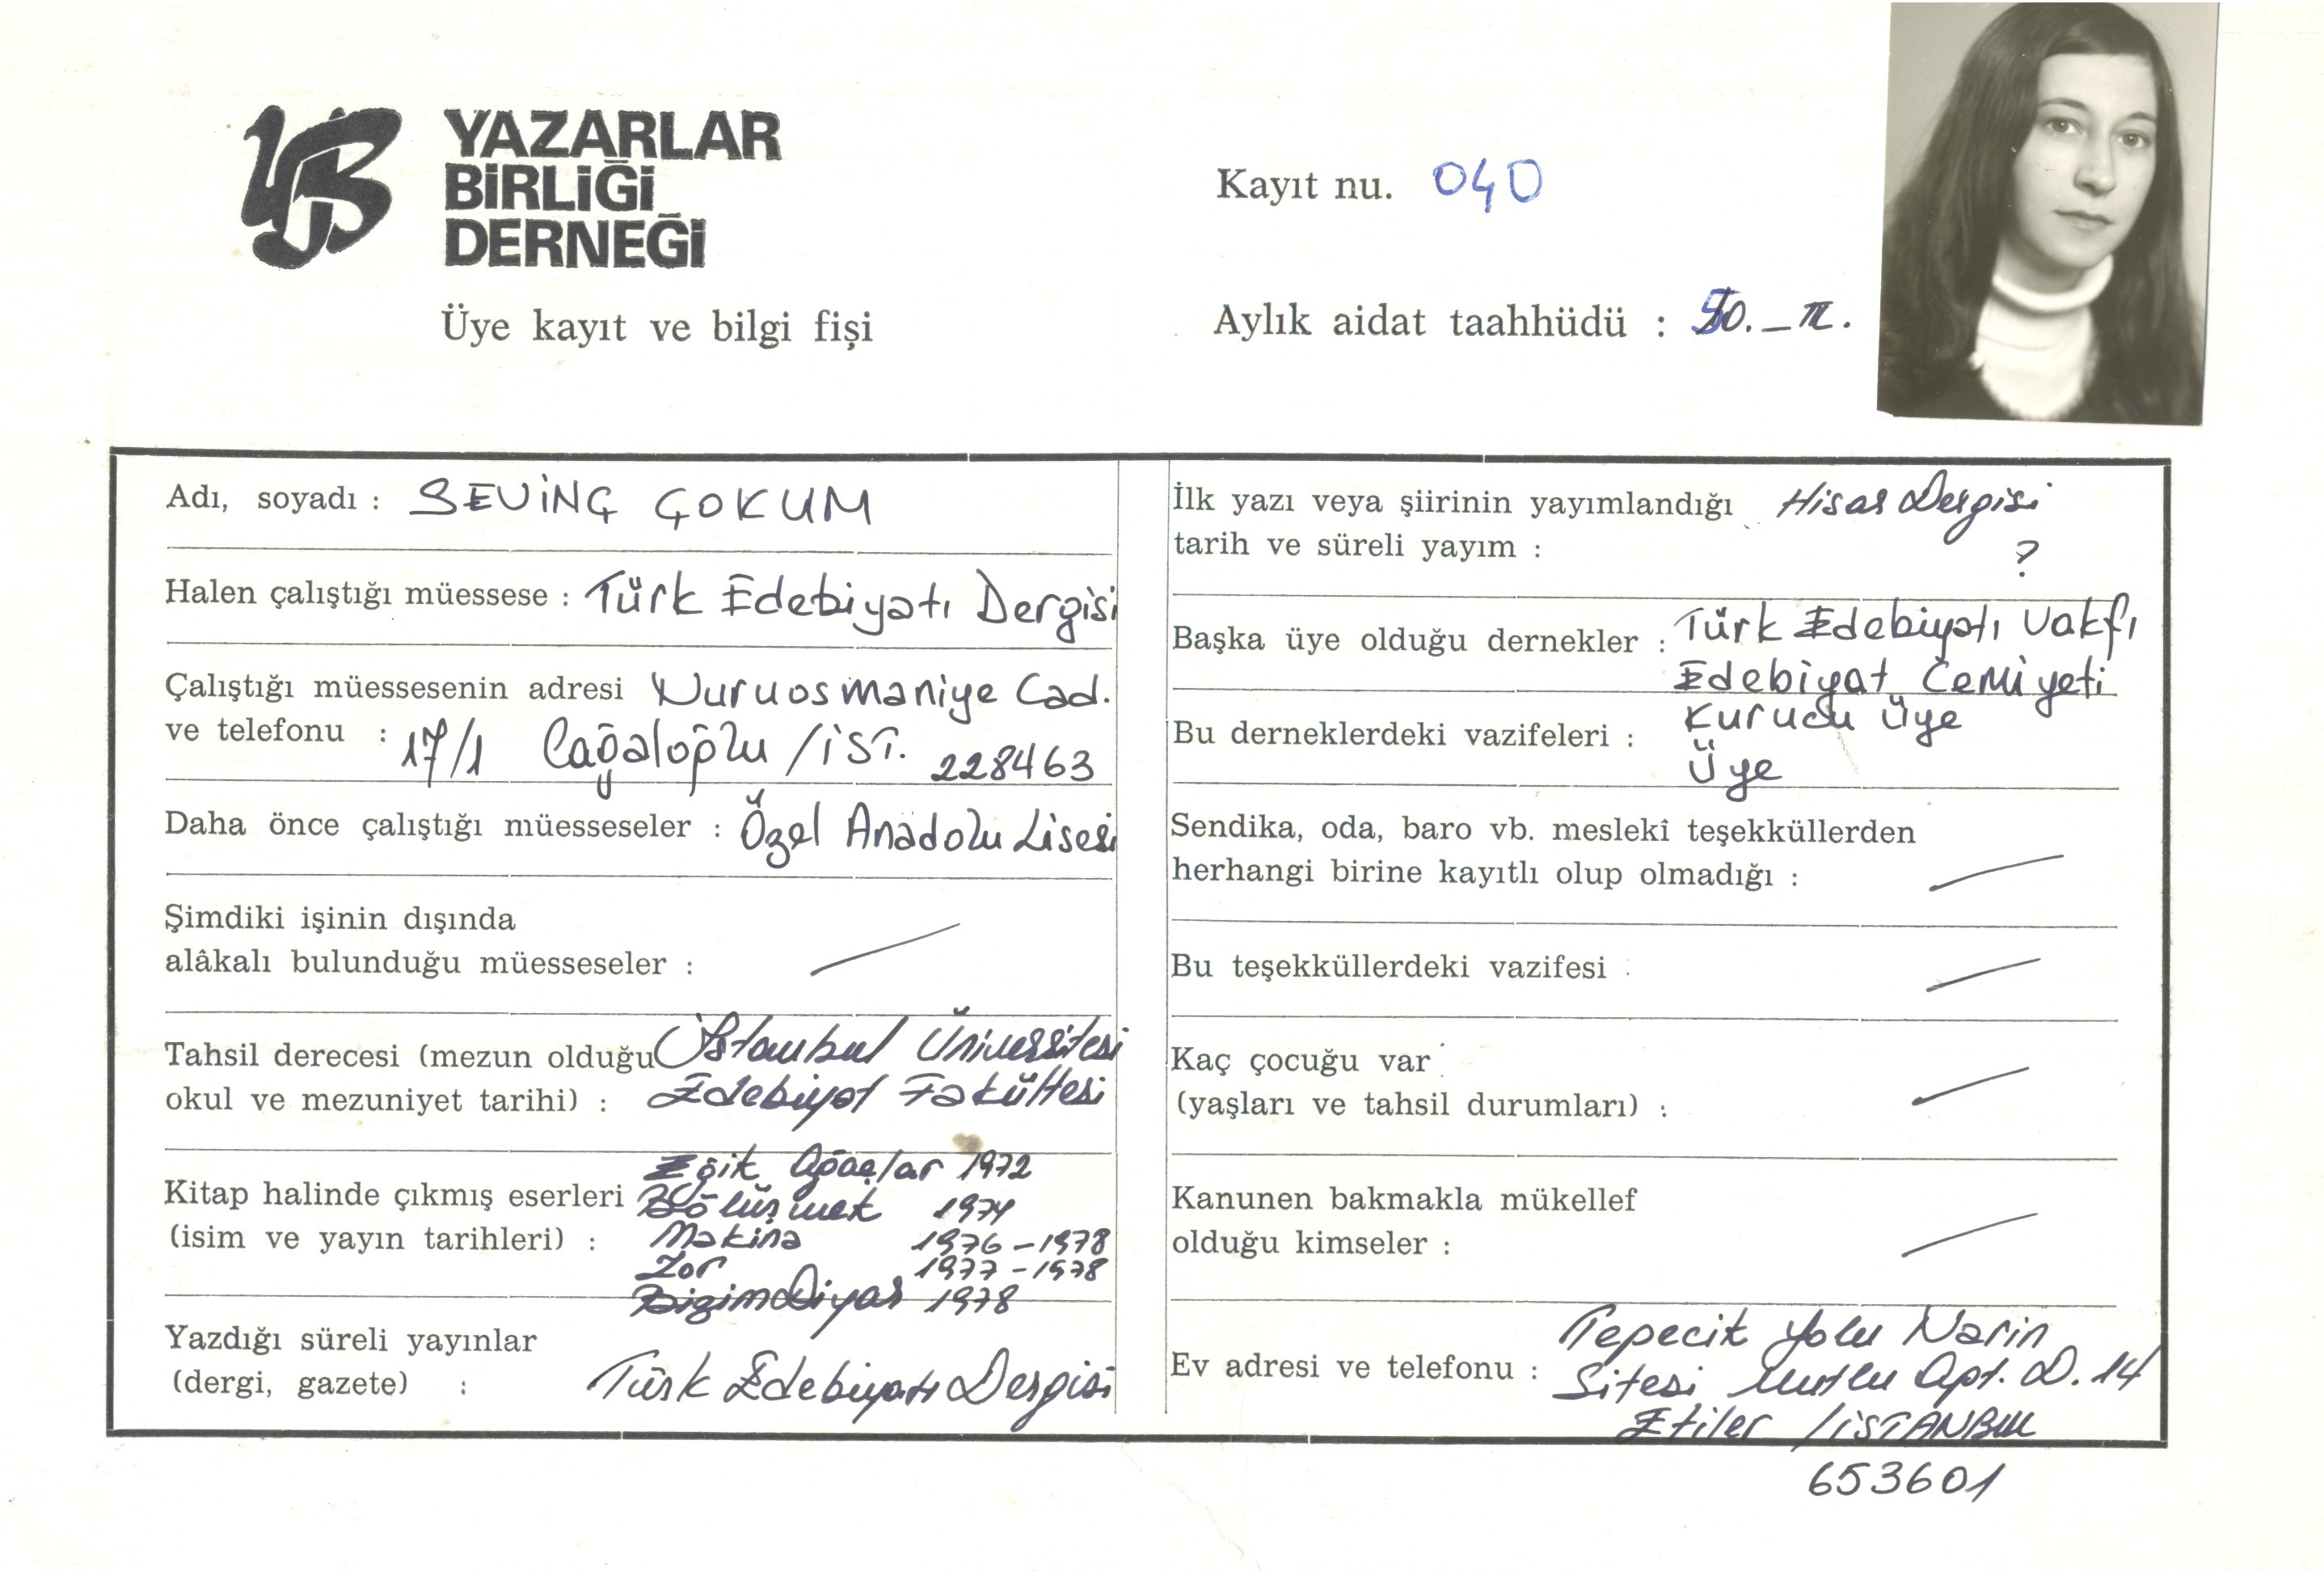 YAZARLAR
BİRLİĞİ
DERNEĞİ
Üye kayıt ve bilgi fişi
Kayıt nu. 040
Aylık aidat taahhüdü : 50.-TL.
Adı, soyadı : SEVİNÇ ÇOKUM
Halen çalıştığı müessese : Türk Edebiyatı Dergisi
Çalıştığı müessesenin adresi Nuruosmaniye Cad.
ve telefonu : 17/1 Cağaloğlu /İST. 228463
Daha önce çalıştığı müesseseler : Özel Anadolu Lisesi
Şimdiki işinin dışında
alâkalı bulunduğu müesseseler :
Tahsil derecesi (mezun olduğu İstanbul Üniversitesi
okul ve mezuniyet tarihi) : Edebiyat Fakültesi
Eğik Ağaçlar 1972
Kitap halinde çıkmış eserleri Bölüşmek 1974
(isim ve yayın tarihleri) : Makina 1976-1978
Zor 1977-1978
Bizim Diyar 1978
Yazdığı süreli yayınlar
(dergi, gazete) : Türk Edebiyatı Dergisi
İlk yazı veya şiirinin yayımlandığı Hisar Dergisi
tarih ve süreli yayım : ?
Başka üye olduğu dernekler : Türk Edebiyatı Vakfı
Edebiyat Cemiyeti
Bu derneklerdeki vazifeleri : Kurucu Üye
Üye
Sendika, oda, baro vb. meslekî teşekküllerden
herhangi birine kayıtlı olup olmadığı :
Bu teşekküllerdeki vazifesi :
Kaç çocuğu var
(yaşları ve tahsil durumları) :
Kanunen bakmakla mükellef
olduğu kimseler :
Tepecik Yolu Narin
Ev adresi ve telefonu : Sitesi Mutlu Apt. D. 14
Etiler /İSTANBUL
653601